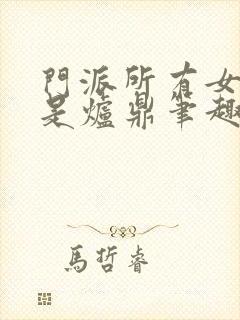 門派所有女
是爐鼎筆趣
馬哲睿